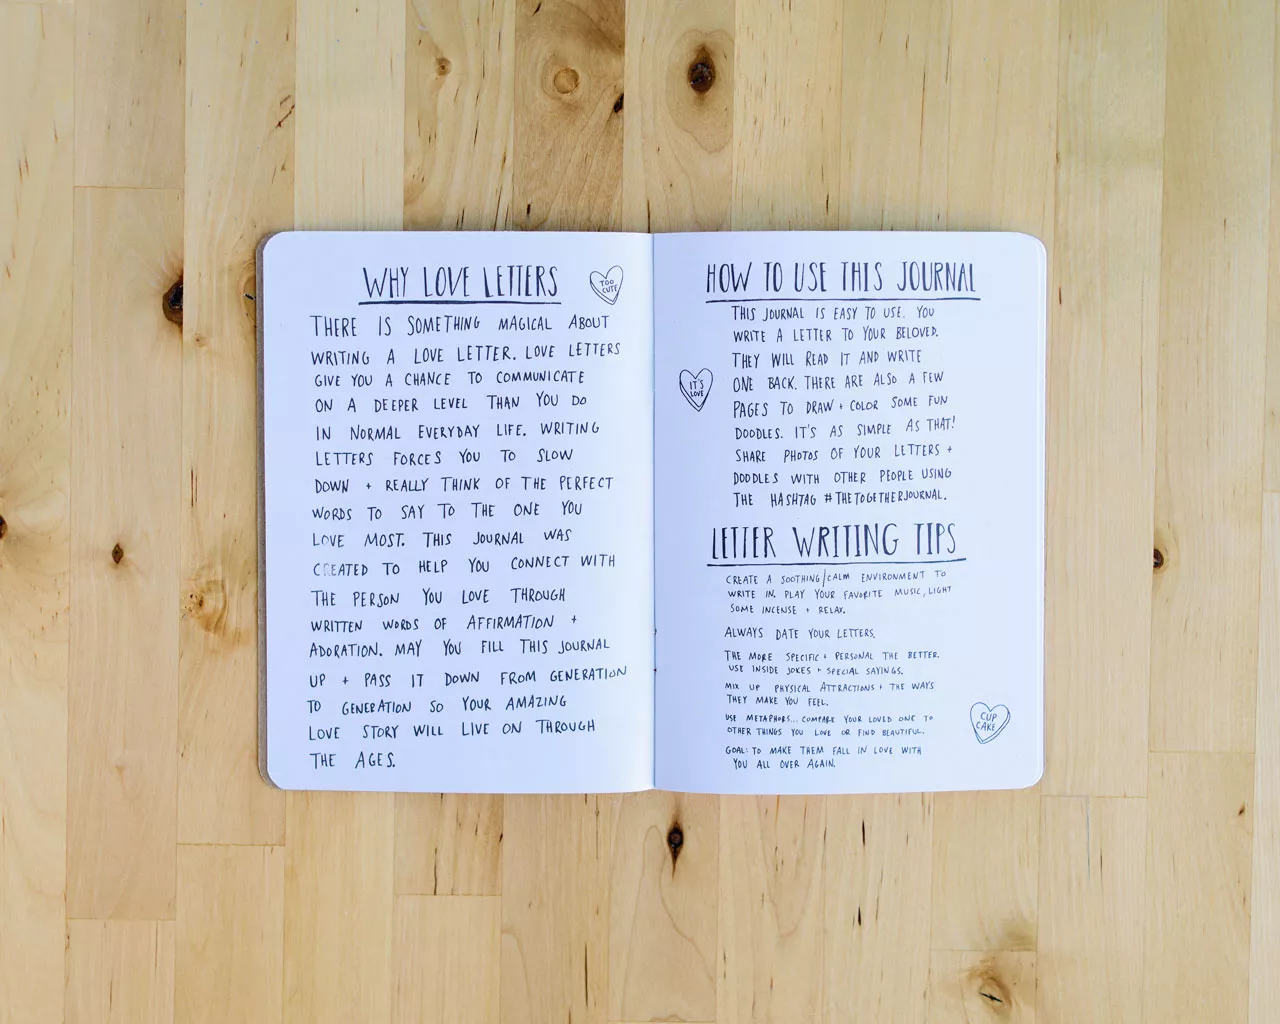 WHY LOVE LETTERS
TOO
CUTE
THERE IS SOMETHING MAGICAL ABOUT
WRITING A LOVE LETTER. LOVE LETTERS
GIVE YOU A CHANCE TO COMMUNICATE
ON A DEEPER LEVEL THAN YOU DO
IN NORMAL EVERYDAY LIFE. WRITING
LETTERS FORCES YOU TO SLOW
DOWN + REALLY THINK OF THE PERFECT
WORDS TO SAY TO THE ONE YOU
LOVE MOST. THIS JOURNAL WAS
CREATED TO HELP YOU CONNECT WITH
THE PERSON YOU LOVE THROUGH
WRITTEN WORDS OF AFFIRMATION +
ADORATION. MAY YOU FILL THIS JOURNAL
UP + PASS IT DOWN FROM GENERATION
TO GENERATION SO YOUR AMAZING
LOVE STORY WILL LIVE ON THROUGH
THE AGES.
HOW TO USE THIS JOURNAL
THIS JOURNAL IS EASY TO USE. YOU
WRITE A LETTER TO YOUR BELOVED.
THEY WILL READ IT AND WRITE
ONE BACK. THERE ARE ALSO A FEW
PAGES TO DRAW + COLOR SOME FUN
DOODLES. IT'S AS SIMPLE AS THAT!
SHARE PHOTOS OF YOUR LETTERS +
DOODLES WITH OTHER PEOPLE USING
THE HASHTAG #THETOGETHERJOURNAL.
IT'S
LOVE
LETTER WRITING TIPS
CREATE A SOOTHING/CALM ENVIRONMENT TO
WRITE IN. PLAY YOUR FAVORITE MUSIC, LIGHT
SOME INCENSE + RELAX.
ALWAYS DATE YOUR LETTERS.
THE MORE SPECIFIC + PERSONAL THE BETTER.
USE INSIDE JOKES + SPECIAL SAYINGS.
MIX UP PHYSICAL ATTRACTIONS + THE WAYS
THEY MAKE YOU FEEL.
USE METAPHORS... COMPARE YOUR LOVED ONE TO
OTHER THINGS YOU LOVE OR FIND BEAUTIFUL.
GOAL: TO MAKE THEM FALL IN LOVE WITH
YOU ALL OVER AGAIN.
CUP
CAKE